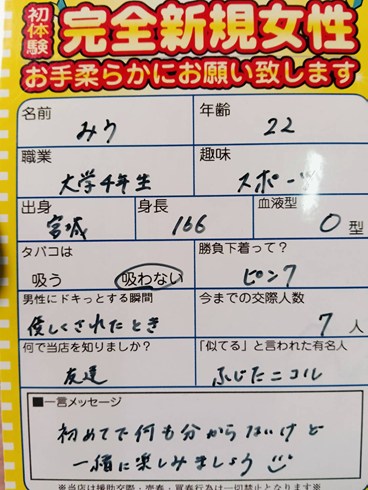 初体験 完全新規女性
お手柔らかにお願い致します
名前 みう 年齢 22
職業 大学4年生 趣味 スポーツ
出身 宮城 身長 166 血液型 O型
タバコは 勝負下着って?
吸う 吸わない ピンク
男性にドキっとする瞬間 今までの交際人数
優しくされたとき 7人
何で当店を知りましたか? 「似てる」と言われた有名人
友達 ふじたニコル
■一言メッセージ
初めてで何も分からないけど
一緒に楽しみましょう
※当店は援助交際・売春・買春行為は一切禁止となります※